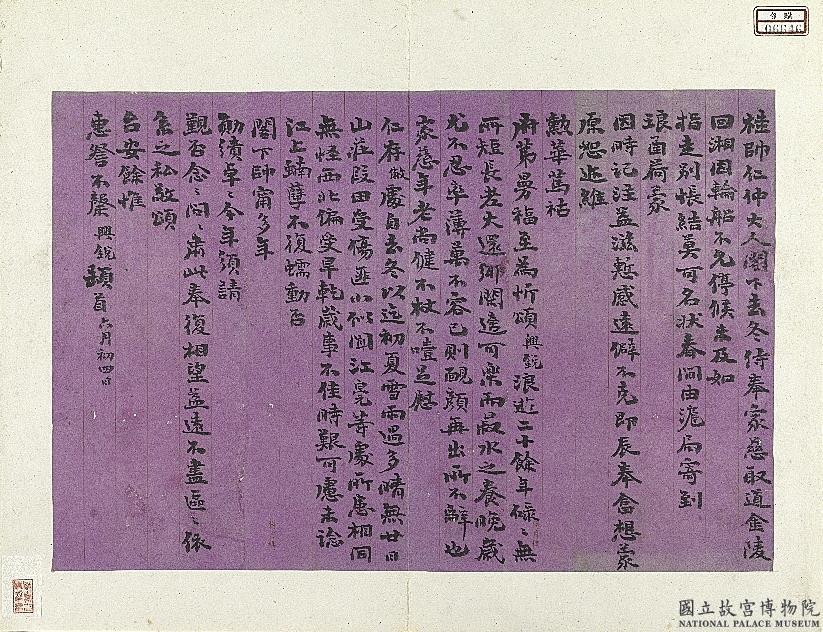 桂帥仁仲大人閣下去冬侍奉家慈取道金陵
回湘因輪船不允停候未及如
指走別悵結莫可名狀春間由滬局寄到
琅函荷蒙
因時記注益滋慙感遠僻不克即辰奉畣想蒙
原恕近維
勳華篤祜
府第曼福至為忻頌興銳浪遊二十餘年碌〻無
所短長老大還鄉閑逸可樂而菽水之養晚歲
尤不忍卒薄萬不容已則靦顏再出所不辭也
家慈年老尚健不杖不噎足慰
仁存敝處自去冬以迄初夏雪雨過多晴無廿日
山莊段田受傷匪小似聞江亳等處所患相同
無怪西北偏受旱乾歲事不佳時艱可慮未諗
江上蝻孽不復蠕動否
閣下帥甯多年
勛績卓〻今年須請
覲否念〻間〻肅此奉復相望益遠不盡區〻依
馬之私敬頌
台安餘惟
惠詧不罄 興銳頓首 六月初四日
國立故宮博物院
NATIONAL PALACE MUSEUM